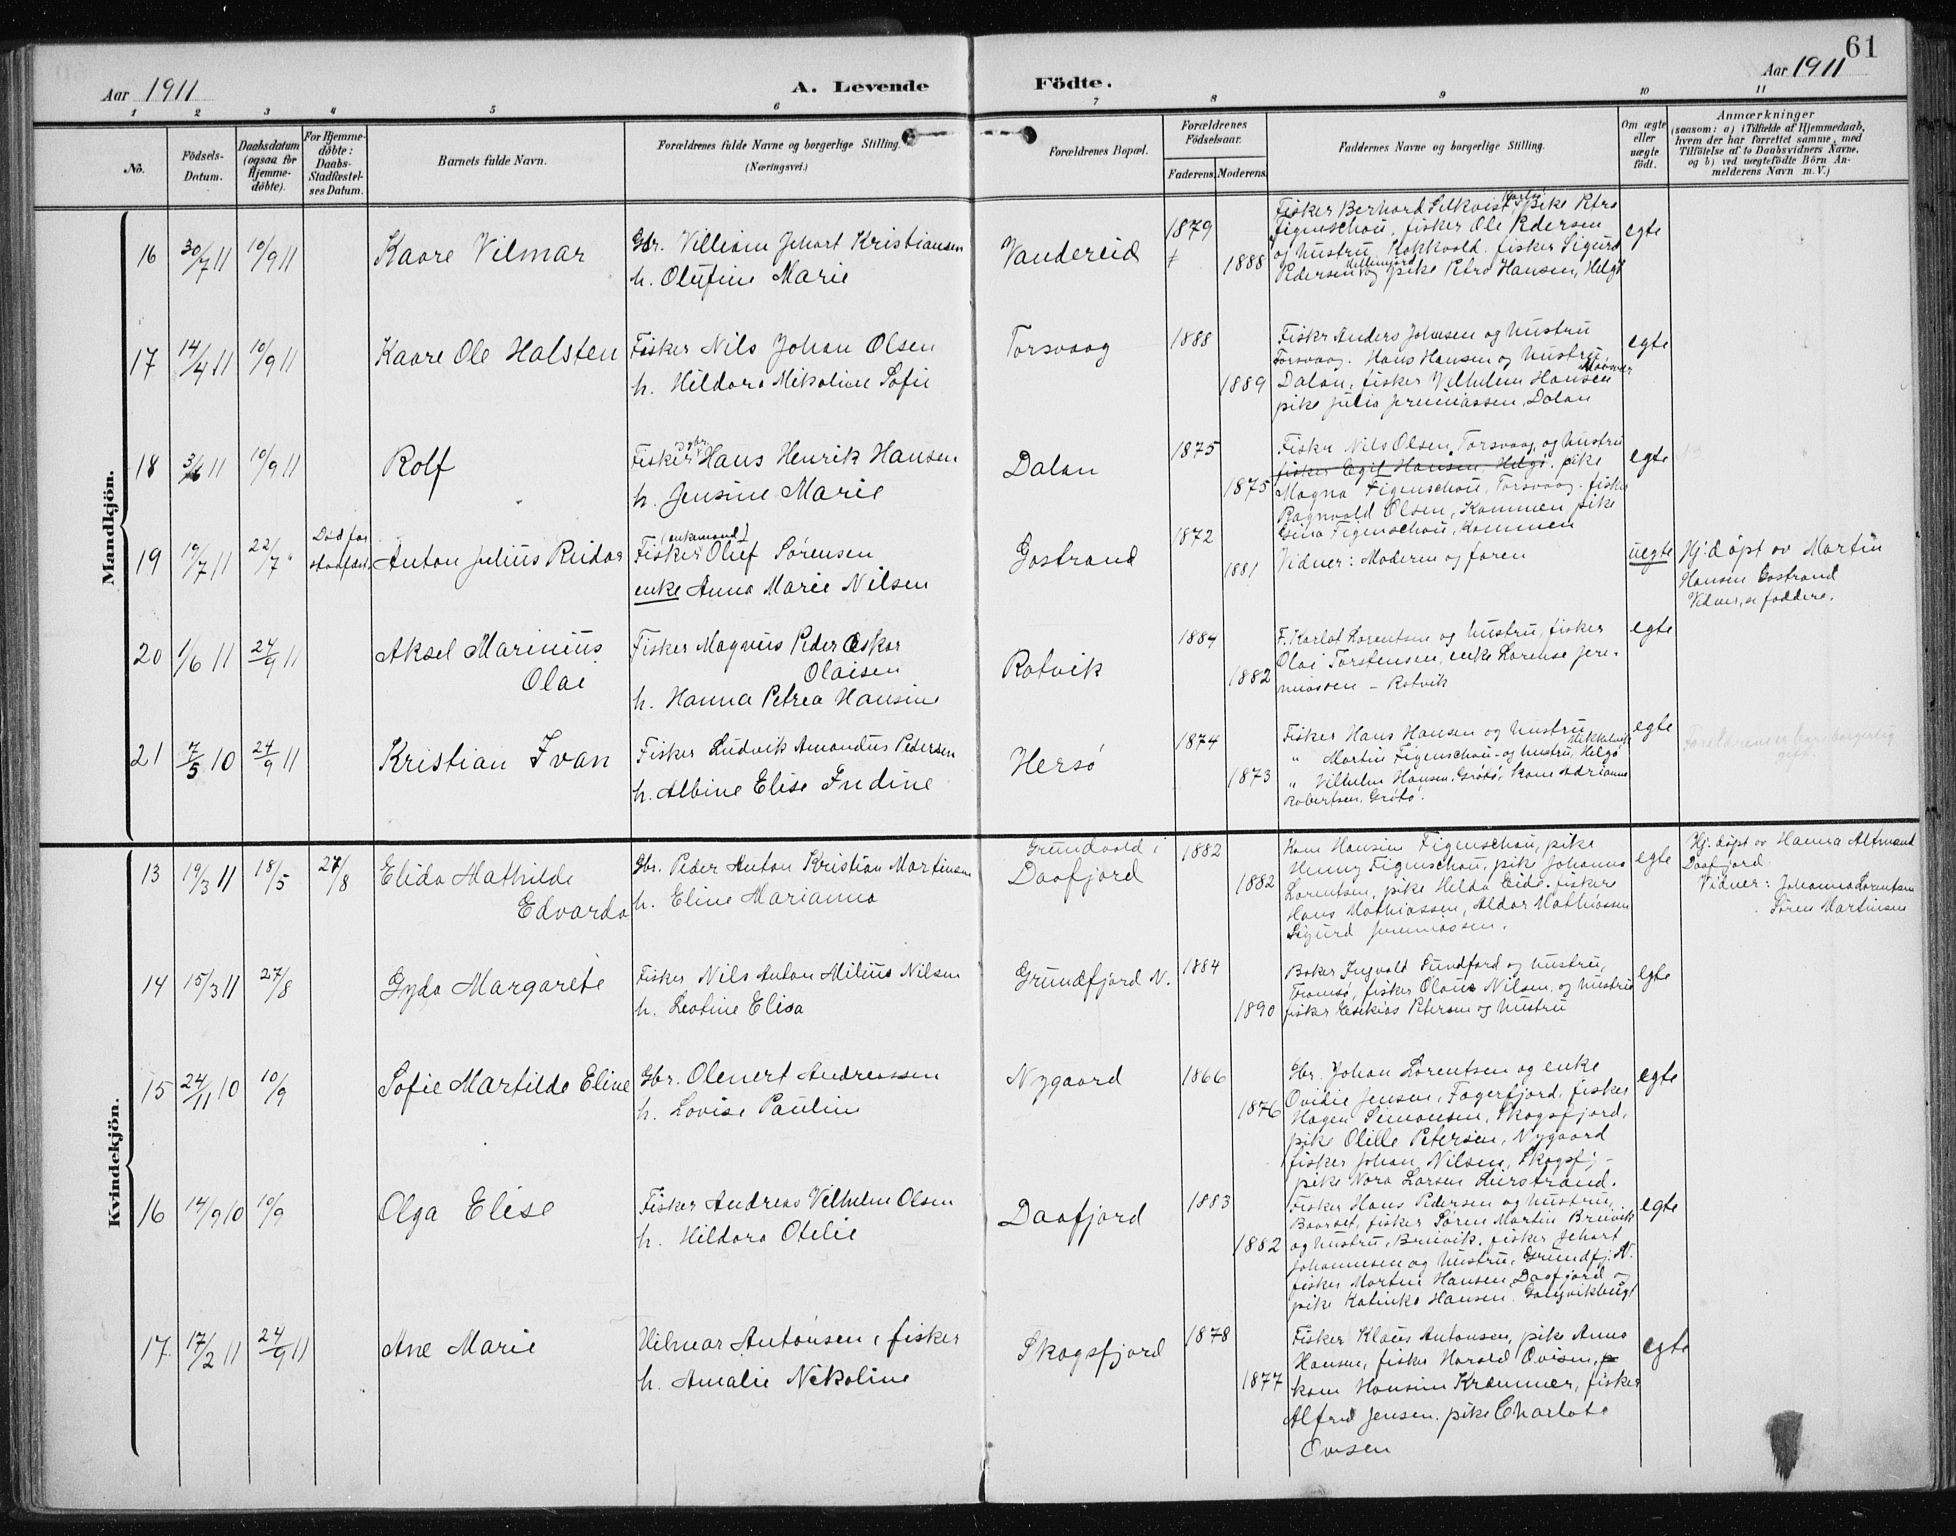 61
Aar 1911
A. Levende Födte.
Aar 1911
1 2 3 4 5 6 7 8 9 10 11
No.
Födsels-
Datum.
Daabsdatum
(ogsaa for
Hjemme-
døbte).
For Hjemme-
døbte:
Daabs-
Stadfæstel-
ses Datum.
Barnets fulde Navn.
Forældrenes fulde Navne og borgerlige Stilling.
(Næringsvei.)
Forældrenes Bopæl.
Forældrenes
Födselsaar.
Faderens. Moderens.
Faddernes Navne og borgerlige Stilling.
Om ægte
eller
uægte
født.
Anmærkninger
(saasom: a) i Tilfælde af Hjemmedaab,
hvem der har forrettet samme, med
Tilföielse af to Daabsvidners Navne,
og b) ved uægtefödte Börn An-
melderens Navn m.V.)
Mandkjön.
16 30/7 11 10/9 11 Kaare Vilmar
Gbr. Villiam Jehart Kristiansen
h. Olufine Marie
Vandereid
1879
1888
Fisker Berhard Selkvist pike Petra
Figenschou, fisker Ole Pedersen
og hustru Kokkvold. fisker Sigurd
Pedersen og pike Petra Hansen, Helgø
egte
17 14/4 11 10/9 11 Kaare Ole Halsten
Fisker Nils Johan Olsen
h. Hildara Mikoline Sofie
Torsvaag
1888
1889
Fisker Anders Johnsen og hustru
Torsvaag. Hans Hansen og hustru,
Dalan, fisker Vilhelm Hansen
pike Julia Jeremiassen, Dalan
egte
18 3/6 11 10/9 11 Rolf
Fisker Hans Henrik Hansen
h. Jensine Marie
Dalan
1875
1875
Fisker Nils Olsen, Torsvaag og hustru
fisker Egil Hansen, Helgø. pike
Magna Figenschou, Torsvaag. fisker
Ragnvald Olsen, Kammen pike
Gina Figenschou, Kammen
egte
19 10/7 11 22/7 Død før
stadfæst. Anton Julius Reidar
(enkemand)
Fisker Oluf Sørensen
enke Anna Marie Nilsen
Gostrand
1872
1881
Vidner: Moderen og faren
uegte
Hj. døpt av Martin
Hansen Gostrand
Vidner, se faddere.
20 1/6 11 24/9 11 Aksel Marinius
Olai
Fisker Magnus Peder Oskar
Olaisen
h. Hanna Petrea Hansine
Rotvik
1884
1882
F. Karlot Lorentsen og hustru, fisker
Olai Torstensen, enke Lorense Jere-
miassen – Rotvik
egte
21 7/5 10 24/9 11 Kristian Ivan
Fisker Ludvik Amandus Pedersen
h. Albine Elise Indine
Hersø
1874
1873
Fisker Hans Hansen og hustru
" Martin Figenschou og hustru, Helgø
" Vilhelm Hansen, Grøtø, kone Adrianna
Robertsen. Grøtø.
egte
Foreldrene er bare borgerlig
gift
Kvindekjön.
13 19/3 11 18/5 27/8 Elida Mathilde
Edvarda
Gbr. Peder Anton Kristian Martinsen
h. Eline Marianna
Grundvold i
Daafjord
1882
1882
Kone Hansine Figenschou, pike
Henny Figenschou, pike Johanna
Lorentsen, pike Helda Eide. fiskere
Hans Mathiassen, Aldor Mathiassen
Sigurd Jeremiassen.
egte
Hj. døpt av Hanna Altmand
Daafjord.
Vidner: Johanna Lorentsen
Søren Martinsen
14 15/3 11 27/8 Gyda Margarete
Fisker Nils Anton Milius Nilsen
h. Leotine Elisa
Grundfjord N.
1884
1890
Baker Ingvald Sundford og hustru,
Tromsø, fisker Olaus Nilsen og hustru
fisker Esekias Petersen og hustru
egte
15 24/11 10 10/9 Sofie Martilde Eline
Gbr. Olenert Andreassen
h. Lovise Pauline
Nygaard
1866
1876
Gbr. Johan Lorentsen og enke
Ovidie Jensen, Fagerfjord, fisker
Hagen Simonsen, Skogsfjord,
pike Olille Petersen, Nygaard
fisker Johan Nilsen, Skogsfj –
pike Nora Larsen Lurstrand.
egte
16 14/9 10 10/9 Olga Elise
Fisker Andreas Vilhelm Olsen
h. Hildara Otelie
Daafjord
1883
1882
Fisker Hans Pedersen og hustru,
Baarset, fisker Søren Martin Breivik
og hustru, Breivik. fisker Jehart
Johannesen og hustru, Grundfj. N.
fisker Martin Hansen Daafjord og
pike Katinka Hansen
egte
17. 17/2 11 24/9 11 Ane Marie
Hilmar Antonsen, fisker
h. Amalie Nikoline
Skogsfjord
1878
1877
Fisker Klaus Antonsen, pike Anna
Hansen, fisker Harald Ovesen,
kone Hansine Kræmmer, fisker
Alfred Jensen. pike Charlote
Ovesen
egte